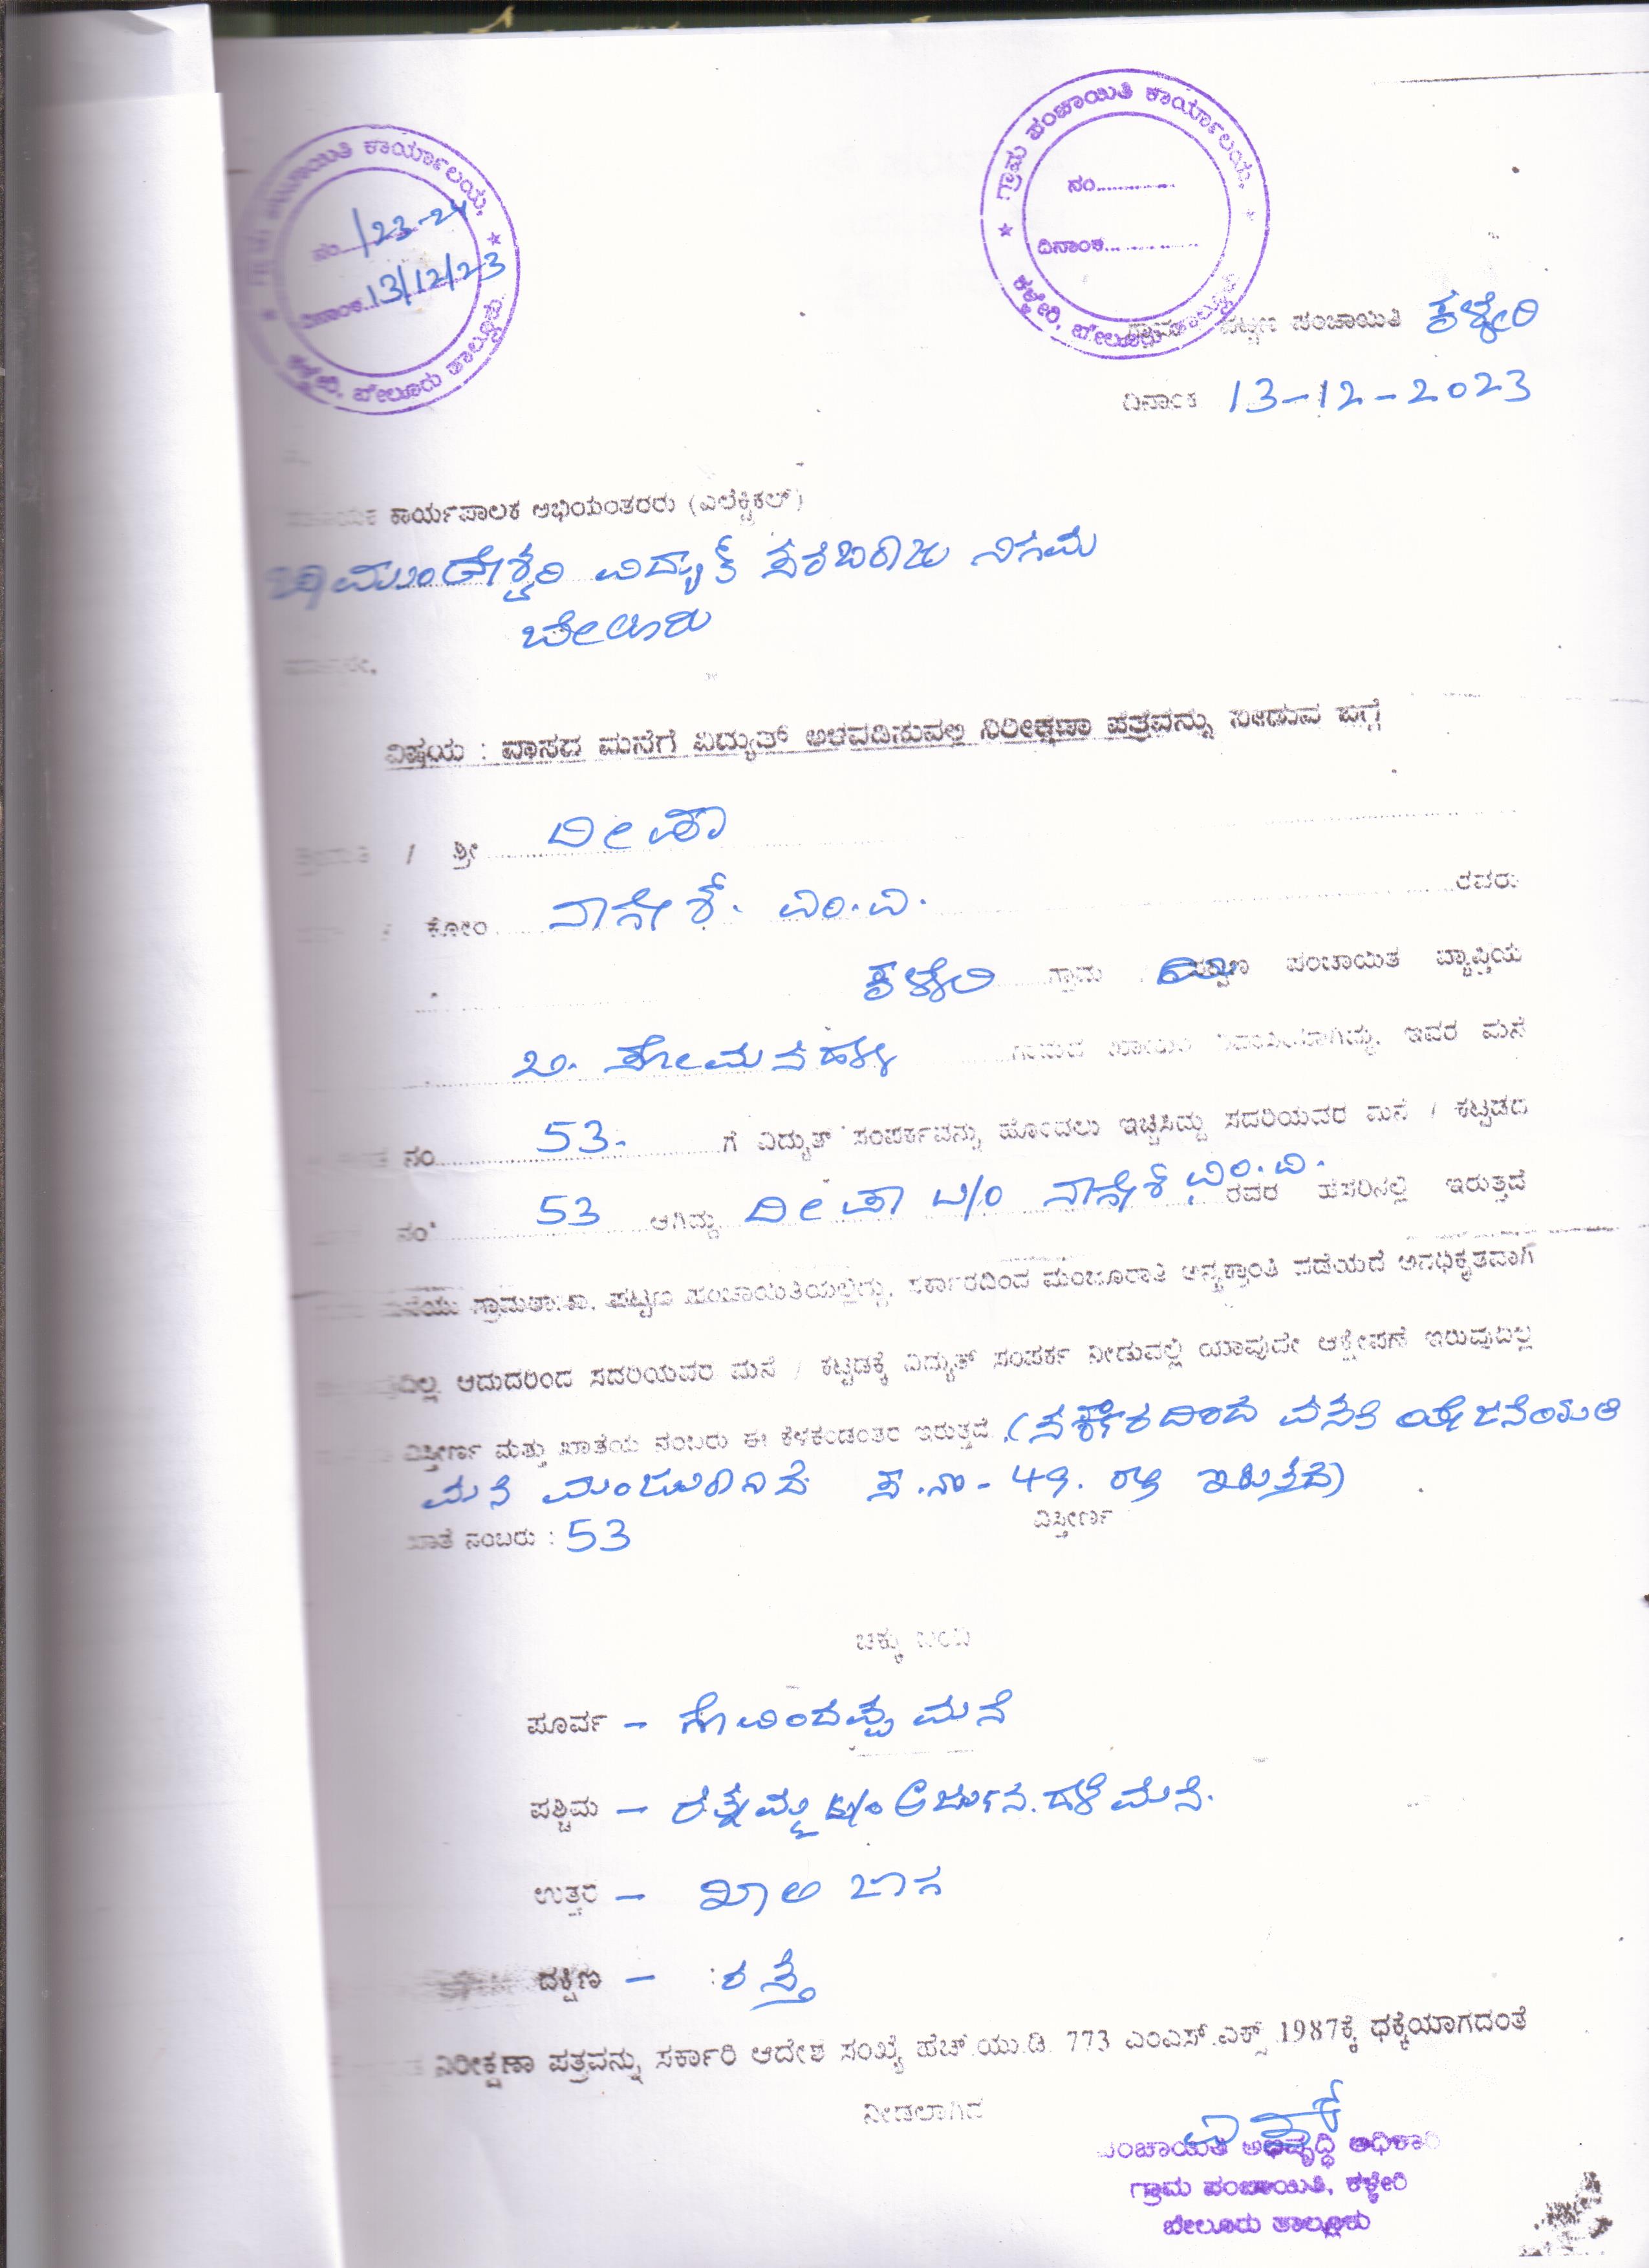 ಪಂಚಾಯಿತಿ ಕಾರ್ಯಾಲಯ,
ನಂ /23-24
ದಿನಾಂಕ 13/12/23
ಕಳ್ಳೇರಿ, ಬೇಲೂರು ತಾಲ್ಲೂಕು.
ಗ್ರಾಮ ಪಂಚಾಯಿತಿ ಕಾರ್ಯಾಲಯ,
ನಂ............
ದಿನಾಂಕ............
ಕಳ್ಳೇರಿ, ಬೇಲೂರು
ಪಟ್ಟಣ ಪಂಚಾಯಿತಿ ಕಳ್ಳೇರಿ
ದಿನಾಂಕ 13-12-2023
ಕಾರ್ಯಪಾಲಕ ಅಭಿಯಂತರರು (ಎಲೆಕ್ಟ್ರಿಕಲ್)
ಚಾಮುಂಡೇಶ್ವರಿ ವಿದ್ಯುತ್ ಸರಬರಾಜು ನಿಗಮ
ಬೇಲೂರು
ವಿಷಯ : ವಾಸದ ಮನೆಗೆ ವಿದ್ಯುತ್ ಅಳವಡಿಸುವಲ್ಲಿ ನಿರೀಕ್ಷಣಾ ಪತ್ರವನ್ನು ನೀಡುವ ಬಗ್ಗೆ
/ ಶ್ರೀ ದೀಪಾ
/ ಕೋಂ ನಾಗೇಶ್. ಎಂ.ವಿ. ರವರು
ಕಳ್ಳೇರಿ ಗ್ರಾಮ / ಪಟ್ಟಣ ಪಂಚಾಯಿತ ವ್ಯಾಪ್ತಿಯ
ಇವರ ಮನೆ
ನಂ 53. ಗೆ ವಿದ್ಯುತ್ ಸಂಪರ್ಕವನ್ನು ಹೊಂದಲು ಇಚ್ಛಿಸಿದ್ದು ಸದರಿಯವರ ಮನೆ / ಕಟ್ಟಡದ
ನಂ 53 ಆಗಿದ್ದು ದೀಪಾ W/O ನಾಗೇಶ್ ಎಂ.ವಿ. ರವರ ಹೆಸರಿನಲ್ಲಿ ಇರುತ್ತದೆ
ಗ್ರಾಮಠಾಣಾ, ಪಟ್ಟಣ ಪಂಚಾಯಿತಿಯಲ್ಲಿದ್ದು, ಸರ್ಕಾರದಿಂದ ಮಂಜೂರಾತಿ ಅನ್ಯಕ್ರಾಂತಿ ಪಡೆಯದೆ ಅನಧಿಕೃತವಾಗಿ
ಆದುದರಿಂದ ಸದರಿಯವರ ಮನೆ / ಕಟ್ಟಡಕ್ಕೆ ವಿದ್ಯುತ್ ಸಂಪರ್ಕ ನೀಡುವಲ್ಲಿ ಯಾವುದೇ ಆಕ್ಷೇಪಣೆ ಇರುವುದಿಲ್ಲ
ವಿಸ್ತೀರ್ಣ ಮತ್ತು ಖಾತೆಯ ನಂಬರು ಈ ಕೆಳಕಂಡಂತರ ಇರುತ್ತದೆ. (ಸರ್ಕಾರದಿಂದ ವಸತಿ ಯೋಜನೆಯಡಿ
ಮನೆ ಮಂಜೂರಾಗಿದೆ ಸ.ನಂ-49. ರಲ್ಲಿ ಇರುತ್ತದೆ)
ಖಾತೆ ನಂಬರು : 53 ವಿಸ್ತೀರ್ಣ
ಚಕ್ಕು ಬಂದಿ
ಪೂರ್ವ - ಗೋವಿಂದಪ್ಪ ಮನೆ
ಪಶ್ಚಿಮ - ರತ್ನಮ್ಮ ಮನೆ.
ಉತ್ತರ - ಖಾಲಿ ಜಾಗ
ದಕ್ಷಿಣ - ರಸ್ತೆ
ನಿರೀಕ್ಷಣಾ ಪತ್ರವನ್ನು ಸರ್ಕಾರಿ ಆದೇಶ ಸಂಖ್ಯೆ ಹೆಚ್.ಯು.ಡಿ. 773 ಎಂಎಸ್.ಎಕ್ಸ್ 1987ಕ್ಕೆ ಧಕ್ಕೆಯಾಗದಂತೆ
ನೀಡಲಾಗಿದೆ
ಪಂಚಾಯಿತಿ ಅಭಿವೃದ್ಧಿ ಅಧಿಕಾರಿ
ಗ್ರಾಮ ಪಂಚಾಯಿತಿ, ಕಳ್ಳೇರಿ
ಬೇಲೂರು ತಾಲ್ಲೂಕು